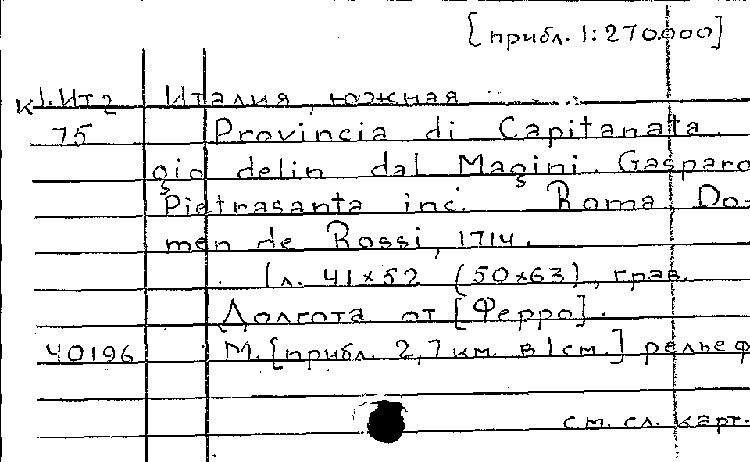 [прибл. 1:270.000]
К 1.Ит2 Италия, южная
75 Provincia di Capitanata.
gia delin dal Magini. Gasparo
Pietrasanta inc. Roma Do-
men de Rossi, 1714.
1 л. 41×52 (50×63), грав.
Долгота от [Ферро].
40196 М. [прибл. 2,7 км. в 1 см.] рельеф
см. сл. карт.